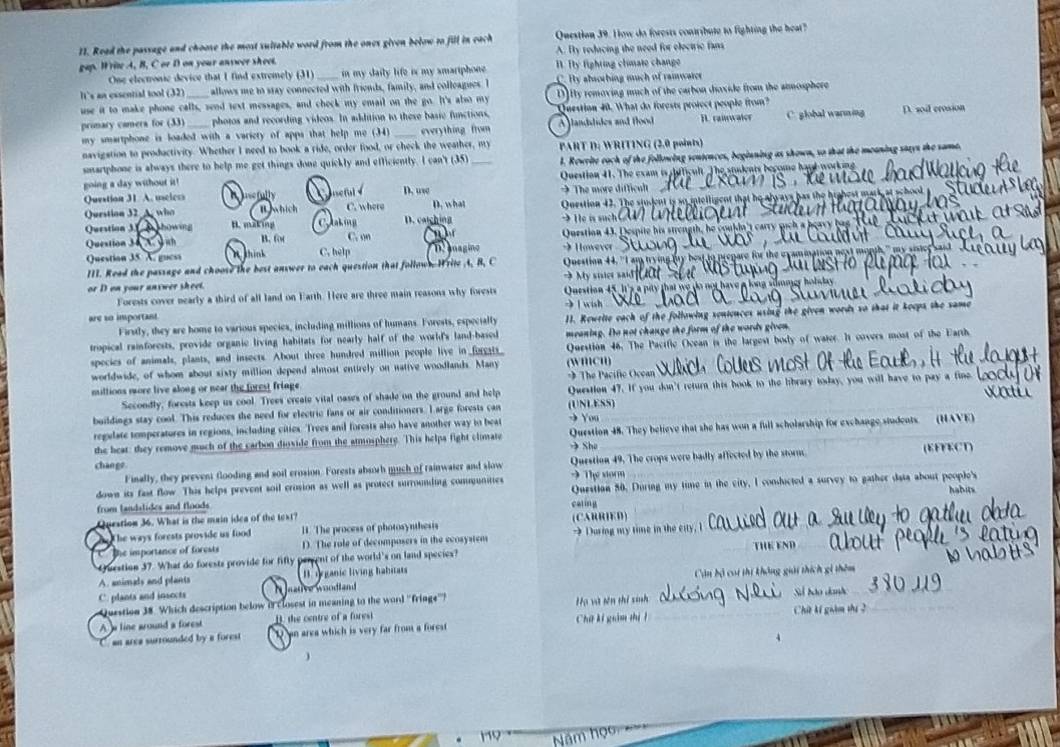 II. Read the passage and choose the most suitable word from the ones given below to fill in each
gap. Write A, B, C or D on your answer sheet.
One electronic device that I find extremely (31) ____ in my daily life is my smartphone.
It's an essential tool (32) ____ allows me to stay connected with friends, family, and colleagues. I
use it to make phone calls, send text messages, and check my email on the go. It's also my
primary camera for (33) ____ photos and recording videos. In addition to these basic functions,
my smartphone is loaded with a variety of apps that help me (34) ____ everything from
navigation to productivity. Whether I need to book a ride, order food, or check the weather, my
smartphone is always there to help me get things done quickly and efficiently. I can't (35) ____
going a day without it!
Question 31. A. useless B. usefully C. useful D. use
Question 32. A. who B. which C. where D. what
Question 33. A. showing B. making C. taking D. catching
Question 34. A. with B. for C. on D. of
Question 35. A. guess B. think C. help D. imagine
III. Read the passage and choose the best answer to each question that follows. Write A, B, C
or D on your answer sheet.
Forests cover nearly a third of all land on Earth. Here are three main reasons why forests
are so important.
Firstly, they are home to various species, including millions of humans. Forests, especially
tropical rainforests, provide organic living habitats for nearly half of the world's land-based
species of animals, plants, and insects. About three hundred million people live in forests
worldwide, of whom about sixty million depend almost entirely on native woodlands. Many
millions more live along or near the forest fringe.
Secondly, forests keep us cool. Trees create vital oases of shade on the ground and help
buildings stay cool. This reduces the need for electric fans or air conditioners. Large forests can
regulate temperatures in regions, including cities. Trees and forests also have another way to beat
the heat: they remove much of the carbon dioxide from the atmosphere. This helps fight climate
change.
Finally, they prevent flooding and soil erosion. Forests absorb much of rainwater and slow
down its fast flow. This helps prevent soil erosion as well as protect surrounding communities
from landslides and floods.
Question 36. What is the main idea of the text?
A. The ways forests provide us food B. The process of photosynthesis
C. The importance of forests D. The role of decomposers in the ecosystem
Question 37. What do forests provide for fifty percent of the world's on land species?
A. animals and plants B. organic living habitats
C. plants and insects D. native woodland
Question 38. Which description below is closest in meaning to the word "fringe"?
A. a line around a forest B. the centre of a forest
C. an area surrounded by a forest D. an area which is very far from a forest
3
Question 39. How do forests contribute to fighting the heat?
A. By reducing the need for electric fans
B. By fighting climate change
C. By absorbing much of rainwater
D. By removing much of the carbon dioxide from the atmosphere
Question 40. What do forests protect people from?
A. landslides and flood B. rainwater C. global warming D. soil erosion
PART D: WRITING (2,0 points)
I. Rewrite each of the following sentences, beginning as shown, so that the meaning stays the same.
Question 41. The exam is difficult. The students become hard-working.
→ The more difficult the exam is, the more hardwalking the students beg
Question 42. The student is so intelligent that he always has the highest mark at school.
→ He is such an intelligent student that
Question 43. Despite his strength, he couldn't carry such a heavy bag.
→ However strong he was, he couldn't carry such a heavy bag
Question 44. "I am trying my best to prepare for the examination next month," my sister said.
→ My sister said that she was tuying her best to prepage for ..
Question 45. It's a pity that we do not have a long summer holiday.
→ I wish we had a long summer holiday
II. Rewrite each of the following sentences using the given words so that it keeps the same
meaning. Do not change the form of the words given.
Question 46. The Pacific Ocean is the largest body of water. It covers most of the Earth.
(WHICH)
→ The Pacific Ocean which covers most of the Earth, is the largest body of water
Question 47. If you don't return this book to the library today, you will have to pay a fine.
(UNLESS)
→ You
Question 48. They believe that she has won a full scholarship for exchange students. (HAVE)
→ She
Question 49. The crops were badly affected by the storm. (EFFECT)
→ The storm
Question 50. During my time in the city, I conducted a survey to gather data about people's
eating habits
(CARRIED)
→ During my time in the city, I carried out a survey to gather data about people's eating habits
THE END
Cán bộ coi thi không giải thích gì thêm
Họ và tên thí sinh Số báo danh 380 119
Chữ kí giám thị 1: Chữ kí giám thị 2:
4
Năm học